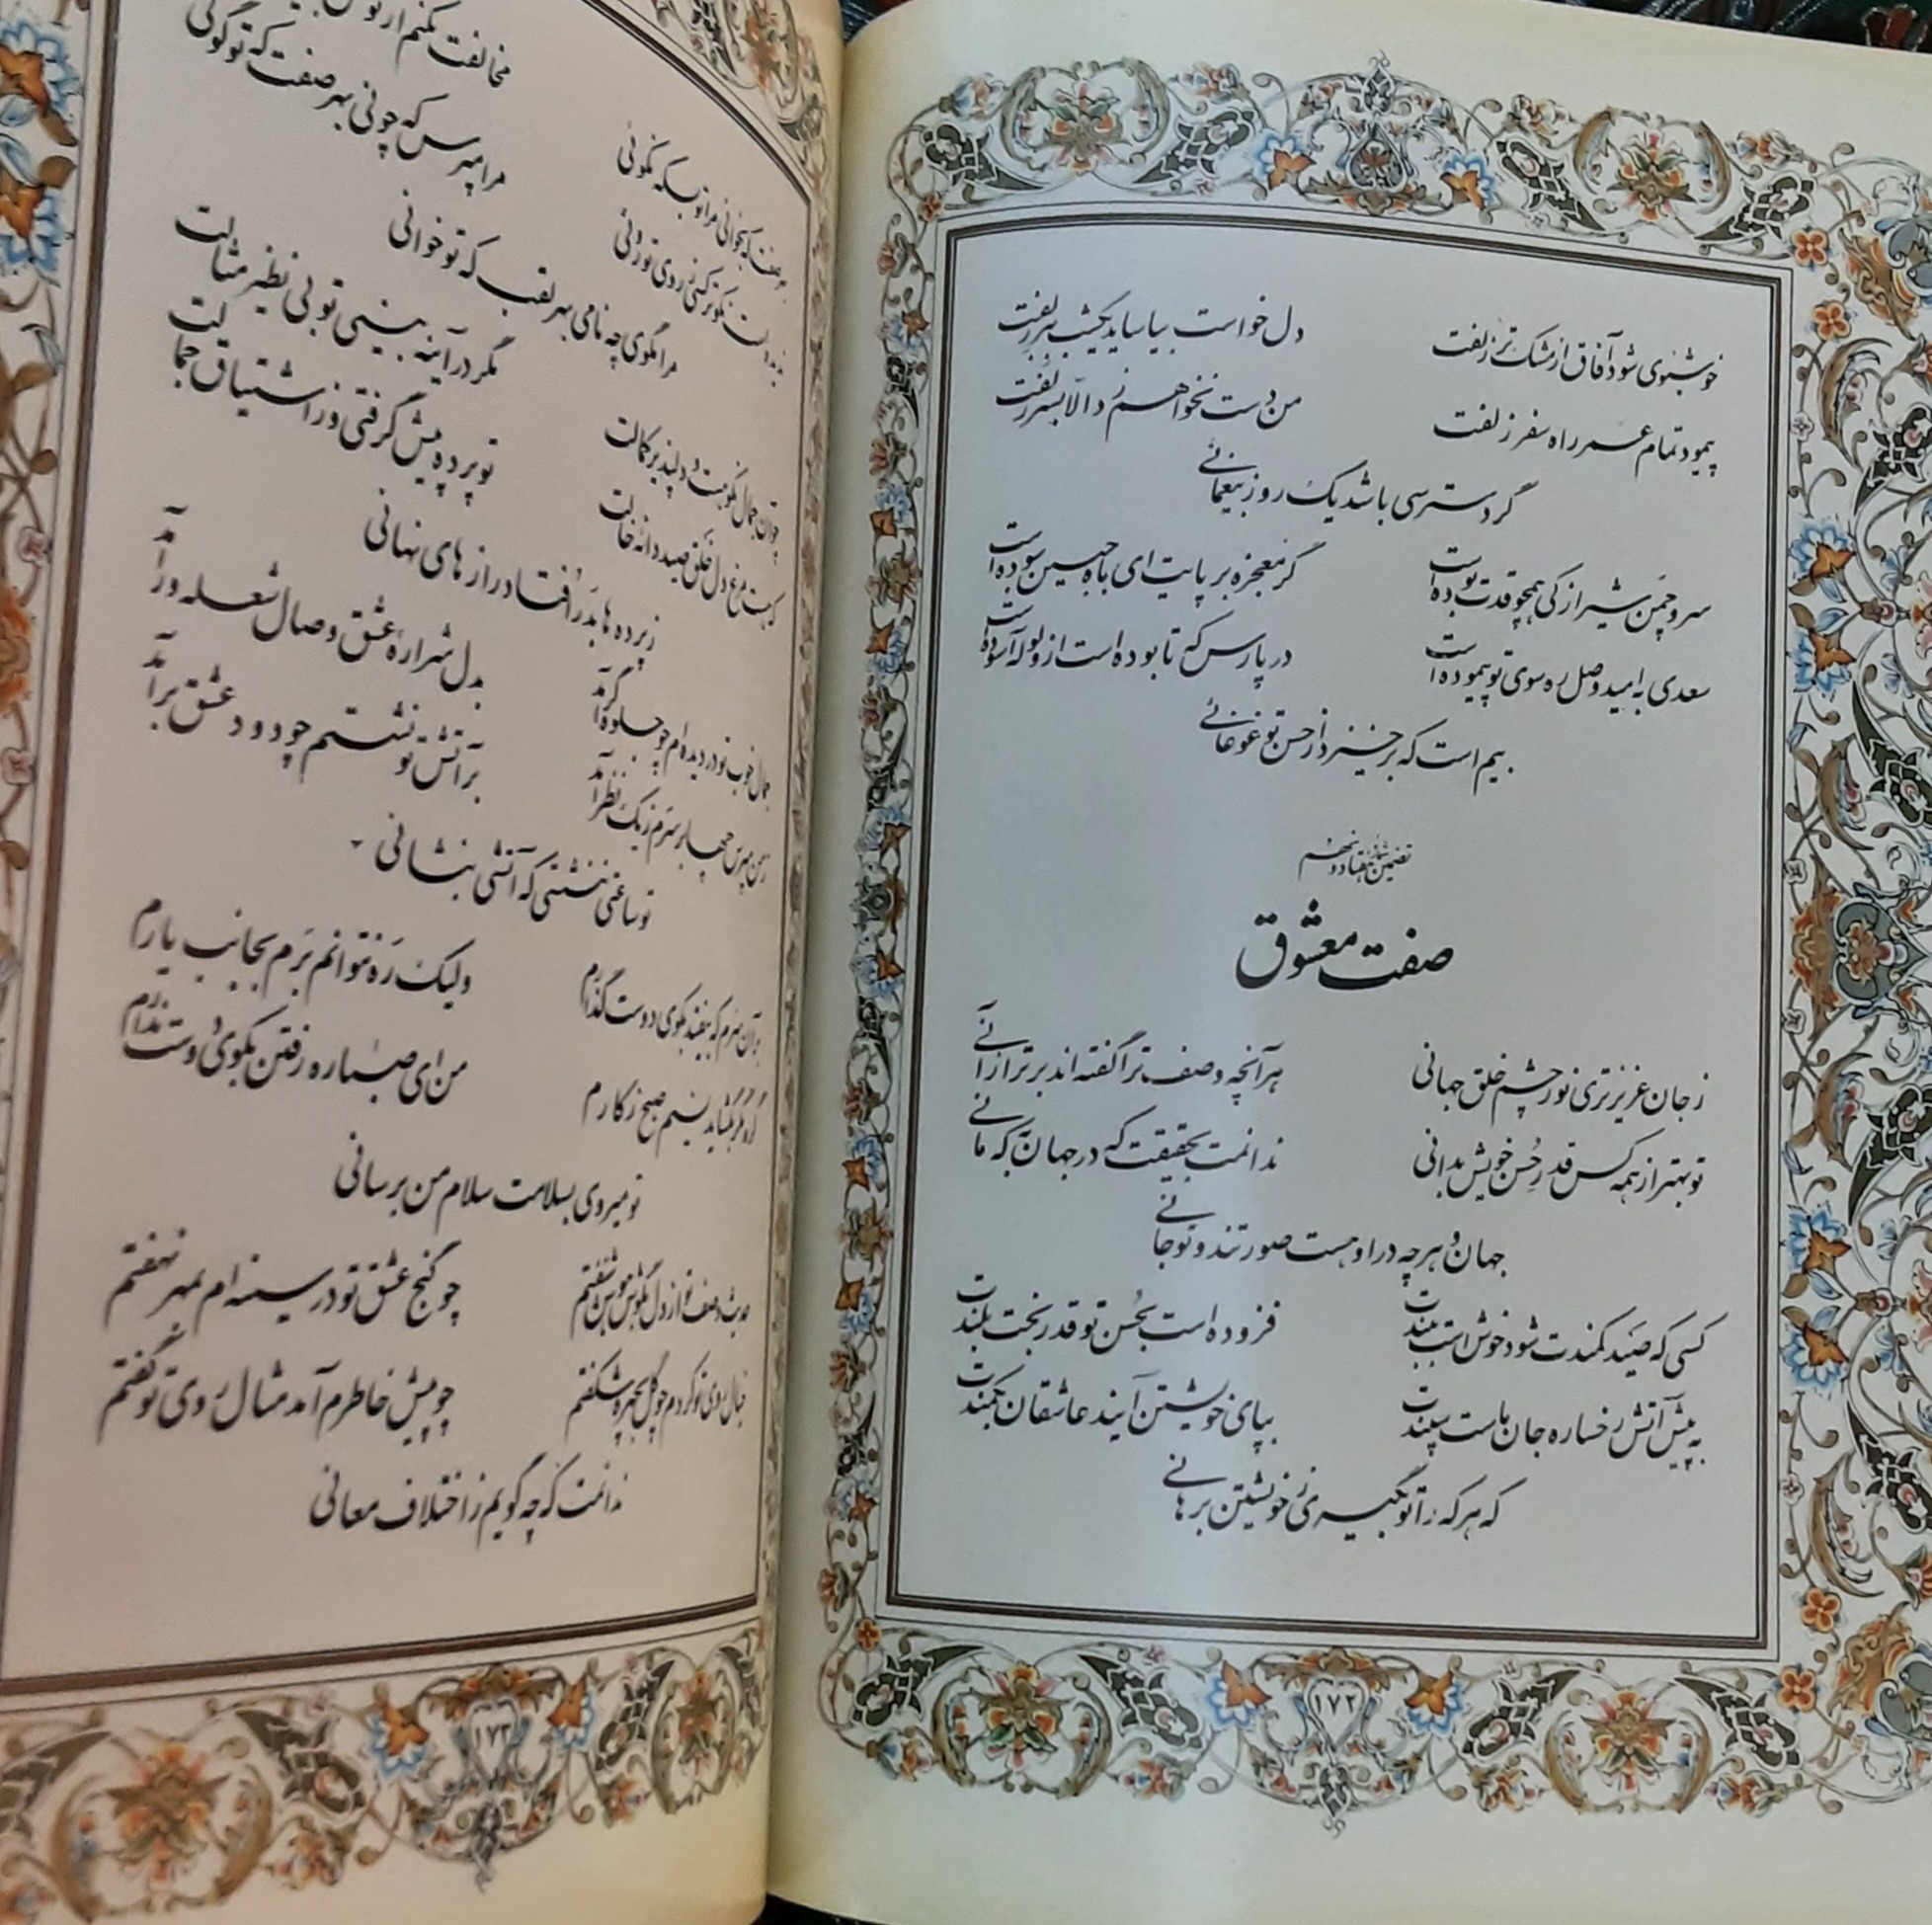 خوشبوی شود آفاق از مشک تر زلفت دل خواست بیاساید یکشب بسر زلفت
پیمود تمام عمر راه سفر زلفت من دست نخواهم زد الا بسر زلفت
گر دسترسی باشد یک روز بیغمائی
سرو چمن شیراز کی همچو قدت بوده است گر معجزه بر پایت ای ماه جبین سوده است
سعدی به امید وصل ره سوی تو پیموده است در پارس که تا بوده است از ولوله آسوده است
بیم است که برخیزد از حسن تو غوغائی
تضمین شماره هفتاد و نهم
صفت معشوق
ز جان عزیزتری نور چشم خلق جهانی هر آنچه وصف ترا گفته اند برتر از آنی
تو بهتر از همه کس قدر حُسن خویش بدانی ندانمت بحقیقت که در جهان به که مانی
جهان و هر چه در او هست صورتند و تو جانی
کسی که صید کمندت شود خوش است ببندت فزوده است بحُسن تو قدر بخت بلندت
به پیش آتش رخساره جان ماست سپندت بپای خویشتن آیند عاشقان بکمندت
که هر که را تو بگیری ز خویشتن برهانی
۱۷۲
مخالفت نکنم از تو
مرا مپرس که چونی بهر صفت که تو گوئی
مرا مگوی چه نامی بهر لقب که تو خوانی
مگر در آینه بینی تو بی نظیر مثالت
کهست مرغ دل خلق صید دانه خالت تو پرده پیش گرفتی و ز اشتیاق جمالت
ز پرده ها بدر افتاد رازهای نهانی
جمال خوب تو در دیده ام چو جلوه گر آمد بدل شراره عشق و صال شعله ور آمد
ز من مپرس چها بر سرم ز یک نظر آمد بر آتش تو نشستم چو دود عشق بر آمد
تو ساعتی ننشستی که آتشی بنشانی
بر آن سرم که بیفتد بکوی دوست گذارم ولیک ره نتوانم برم بجانب یارم
گره مگر بگشاید نسیم صبح ز کارم من ای صبا ره رفتن بکوی دوست ندارم
تو میروی بسلامت سلام من برسانی
حدیث وصف تو از دل بگوش هوش شنفتم چو گنج عشق تو در سینه ام بمهر نهفتم
خیال روی تو کردم چو گل بچهره شکفتم چو پیش خاطرم آمد مثال روی تو گفتم
ندانمت که چه گویم ز اختلاف معانی
۱۷۳